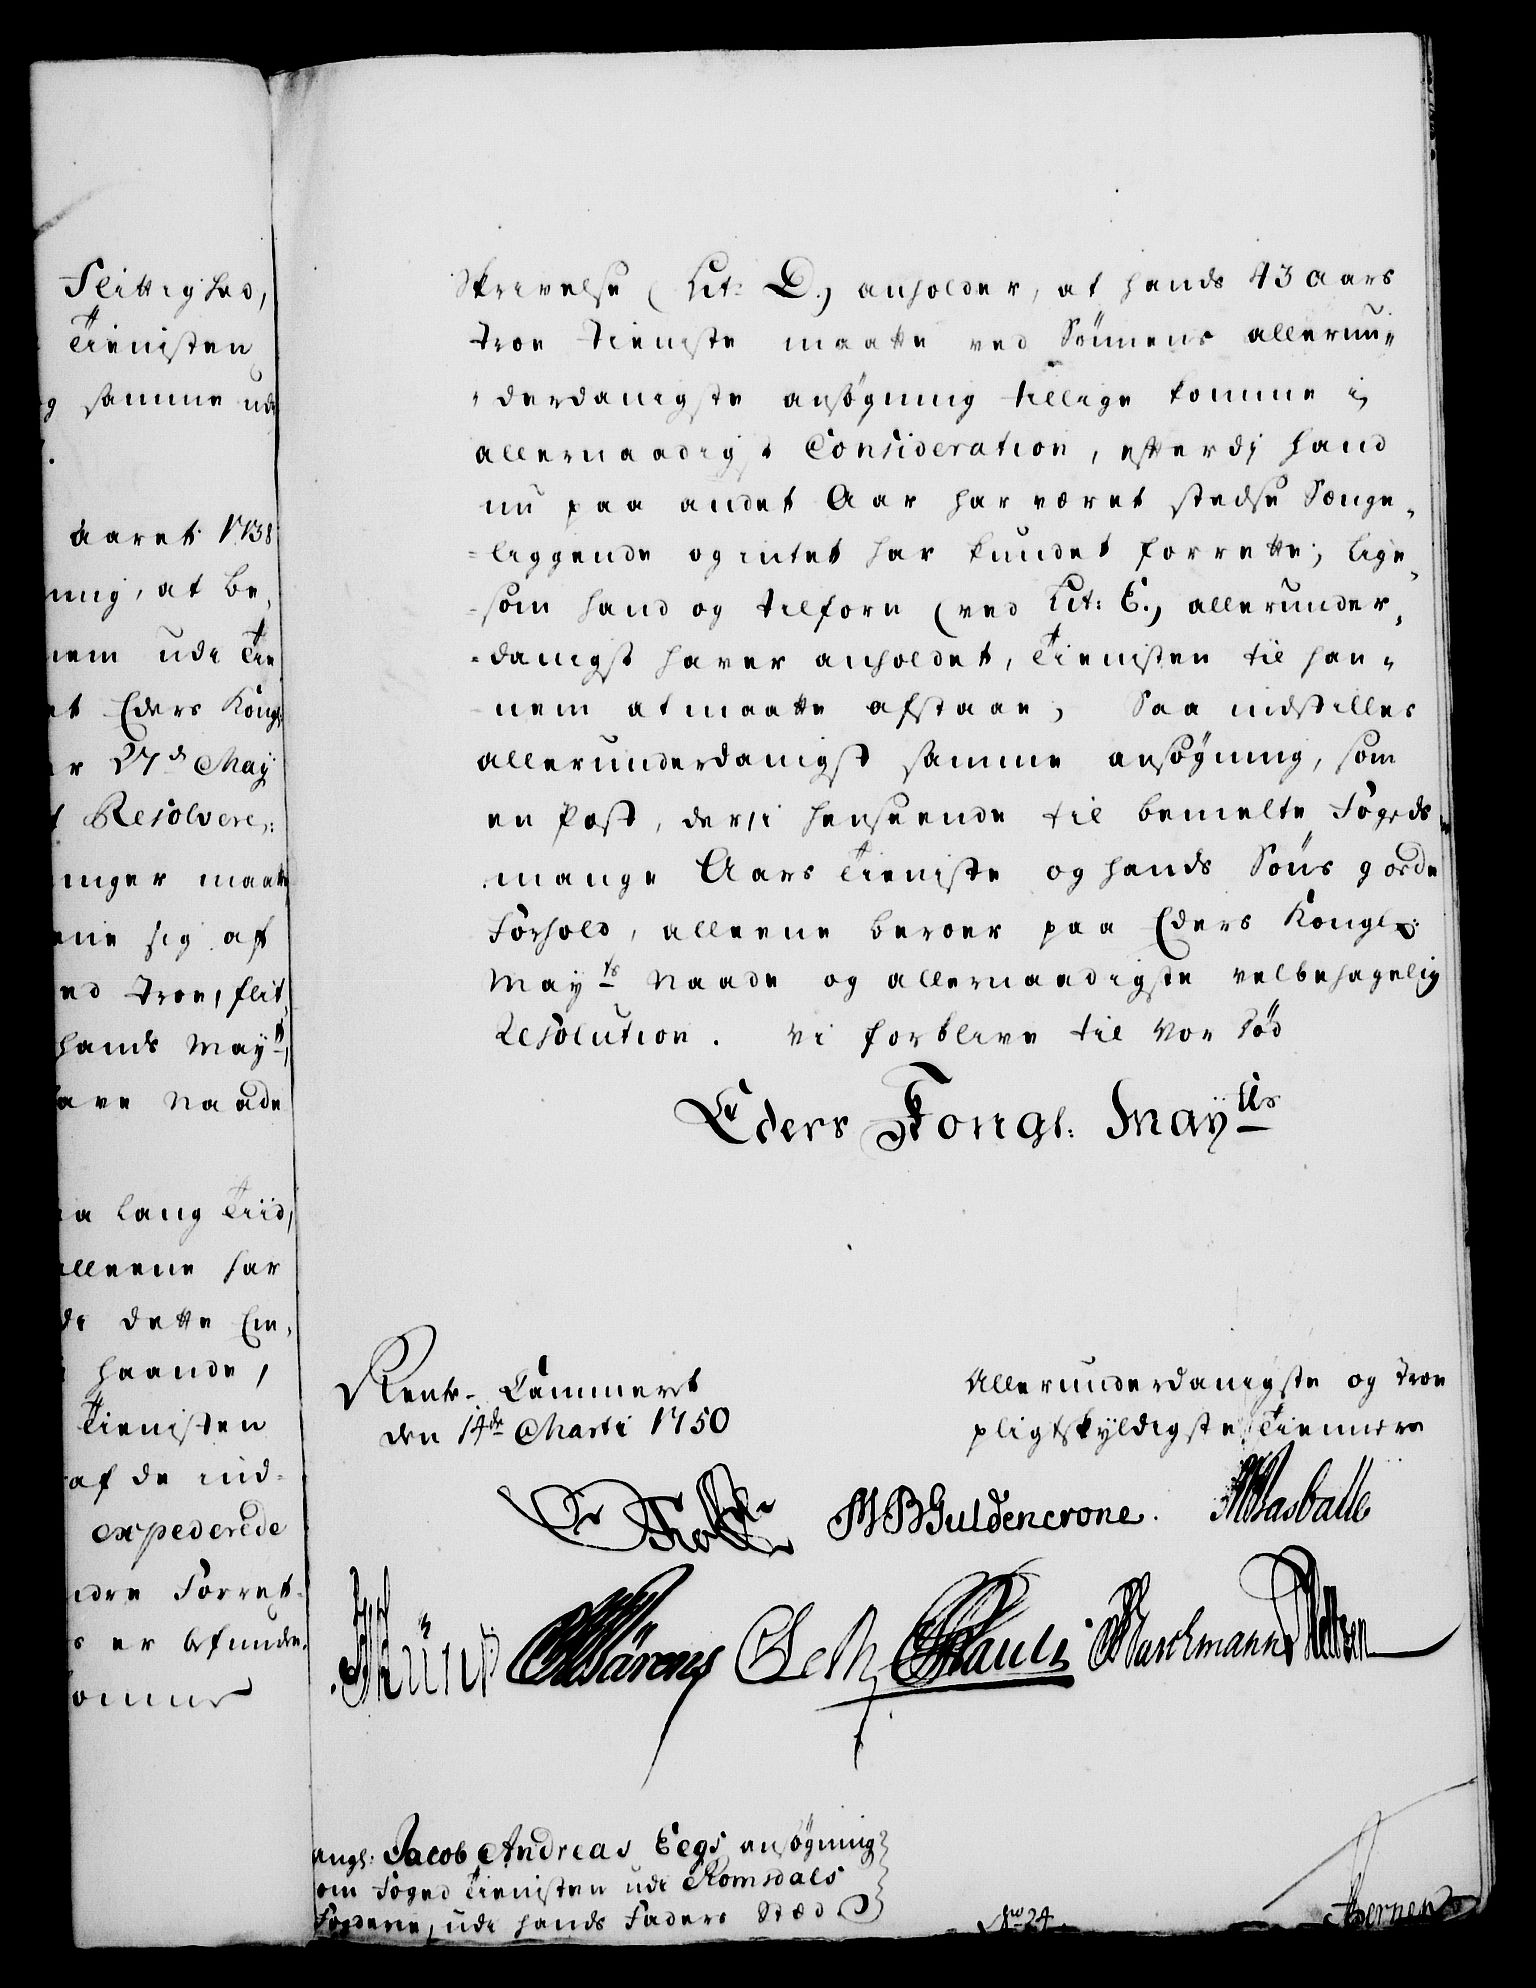 Flittighed,
Tienisten
samme udi
aaret 1738
ning, at be,
nem udi Tie
et Eders Kongl:
27d May
Resolvere,:
inger maatte
ene sig af
ed Troe, flit,
hands Mayts,
have Naade
saa lang Tiid,
alleene har
dette Em,
haande,
Tienisten
af de ind-
expederede
andre Forret-
er befunden
Skrivelse (Lit: D.) anholder, at hands 43 aars
troe tieniste maatte ved Sönnens allerun-
-derdanigste ansøgning tillige komme i
allernaadigst Consideration, efterdj hand
nu paa andet Aar har været stedse Sænge-
-liggende og intet har kundet forrette; lige-
-som hand og tilforn (ved Lit: E.) allerunder-
-danigst haver anholdet, Tienisten til han-
-nem at maatte afstaae; Saa indstilles
allerunderdanigst samme ansøgning, som
en Post, der i henseende til bemelte Fogeds
mange Aars Tieniste og hands Söns goede
Forhold, alleene beroer paa Eders Kongl:
Mayts Naade og allernaadigste velbehagelig
Resolution. Vi forblive til vor Död
Eders Kongl: Mayts
Rente-Cammeret
den 14de Marti 1750
Allerunderdanigste og troe
pligtskyldigste Tiennere
MBGuldencrone. Wasballe
Pauli
Jacob Andreas Eegs ansøgning
om Foged Tienisten udi Romsdals
Fogderie, udi hands Faders Stæd
No 24.